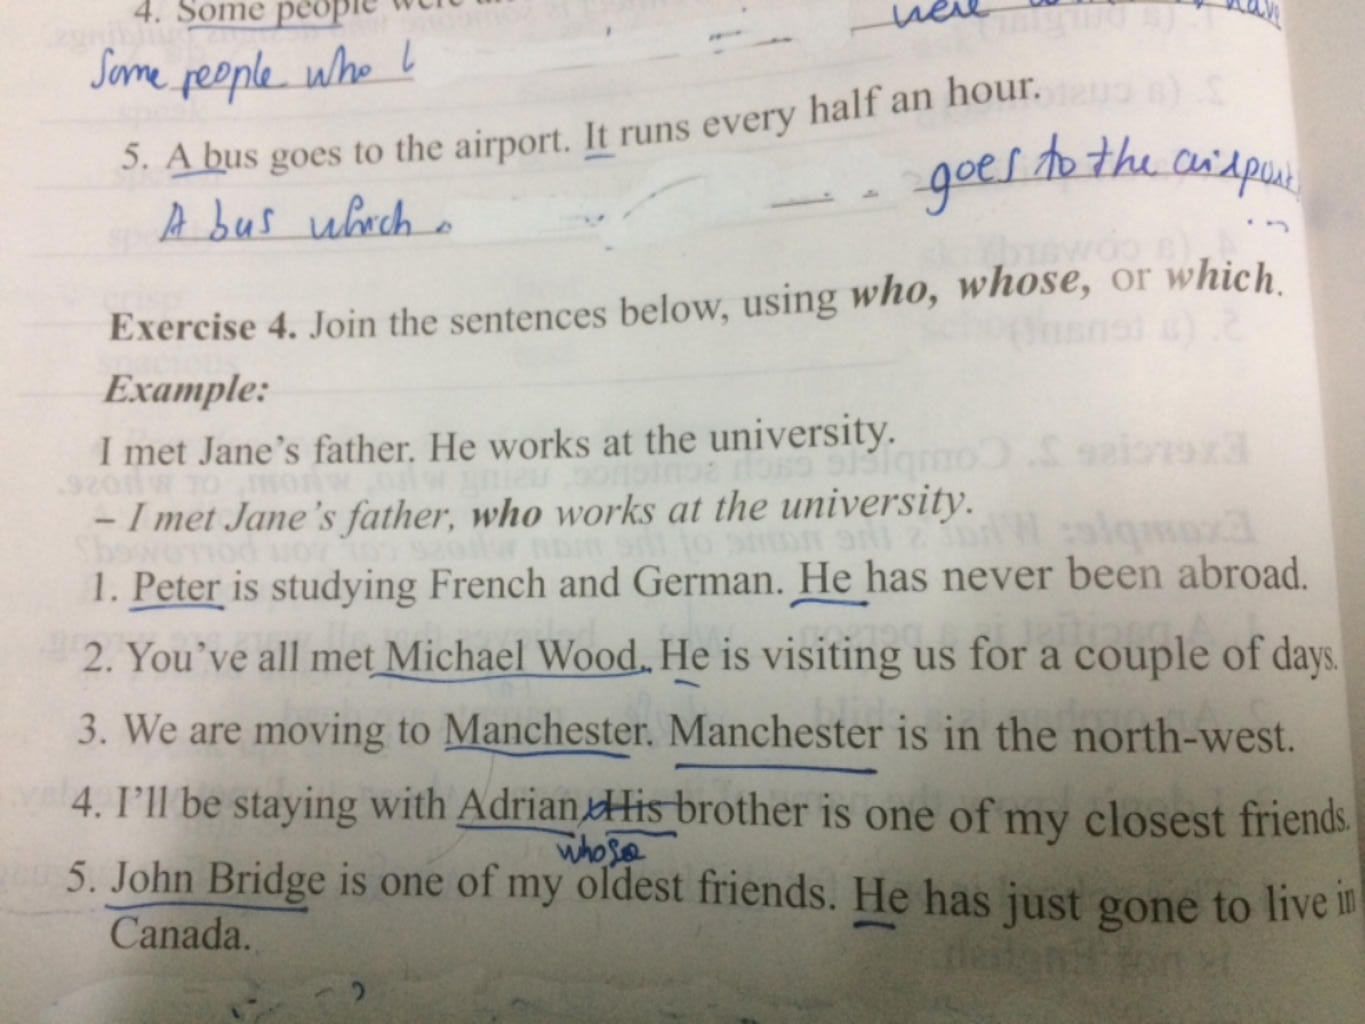 4. Some people were
were
Some people who
5. A bus goes to the airport. It runs every half an hour.
A bus which goes to the airport
Exercise 4. Join the sentences below, using who, whose, or which.
Example:
I met Jane's father. He works at the university.
– I met Jane's father, who works at the university.
1. Peter is studying French and German. He has never been abroad.
2. You've all met Michael Wood. He is visiting us for a couple of days.
3. We are moving to Manchester. Manchester is in the north-west.
4. I'll be staying with Adrian, His brother is one of my closest friends.
whose
5. John Bridge is one of my oldest friends. He has just gone to live in
Canada.